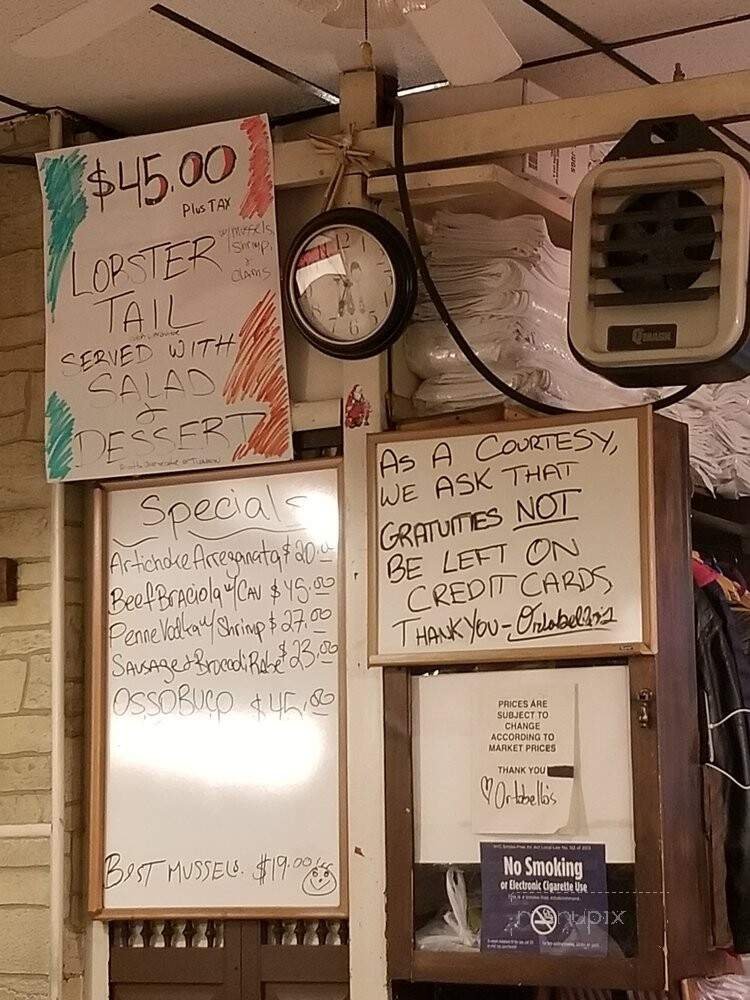 $45.00
Plus TAX
LOBSTER
w/mussels,
shrimp,
&
clams
TAIL
SERVED WITH
SALAD
&
DESSERT
12
6
Specials
Artichoke Arreganata $20.00
Beef Braciola w/ CAV $45.00
Penne Vodka w/ Shrimp $27.00
Sausage & Brocoli Rabe $23.00
OSSOBUCO $45.00
BEST MUSSELS. $19.00
AS A COURTESY,
WE ASK THAT
GRATUITIES NOT
BE LEFT ON
CREDIT CARDS
THANK YOU - Ortobello's
PRICES ARE
SUBJECT TO
CHANGE
ACCORDING TO
MARKET PRICES
THANK YOU
Ortobello's
No Smoking
or Electronic Cigarette Use
menupix